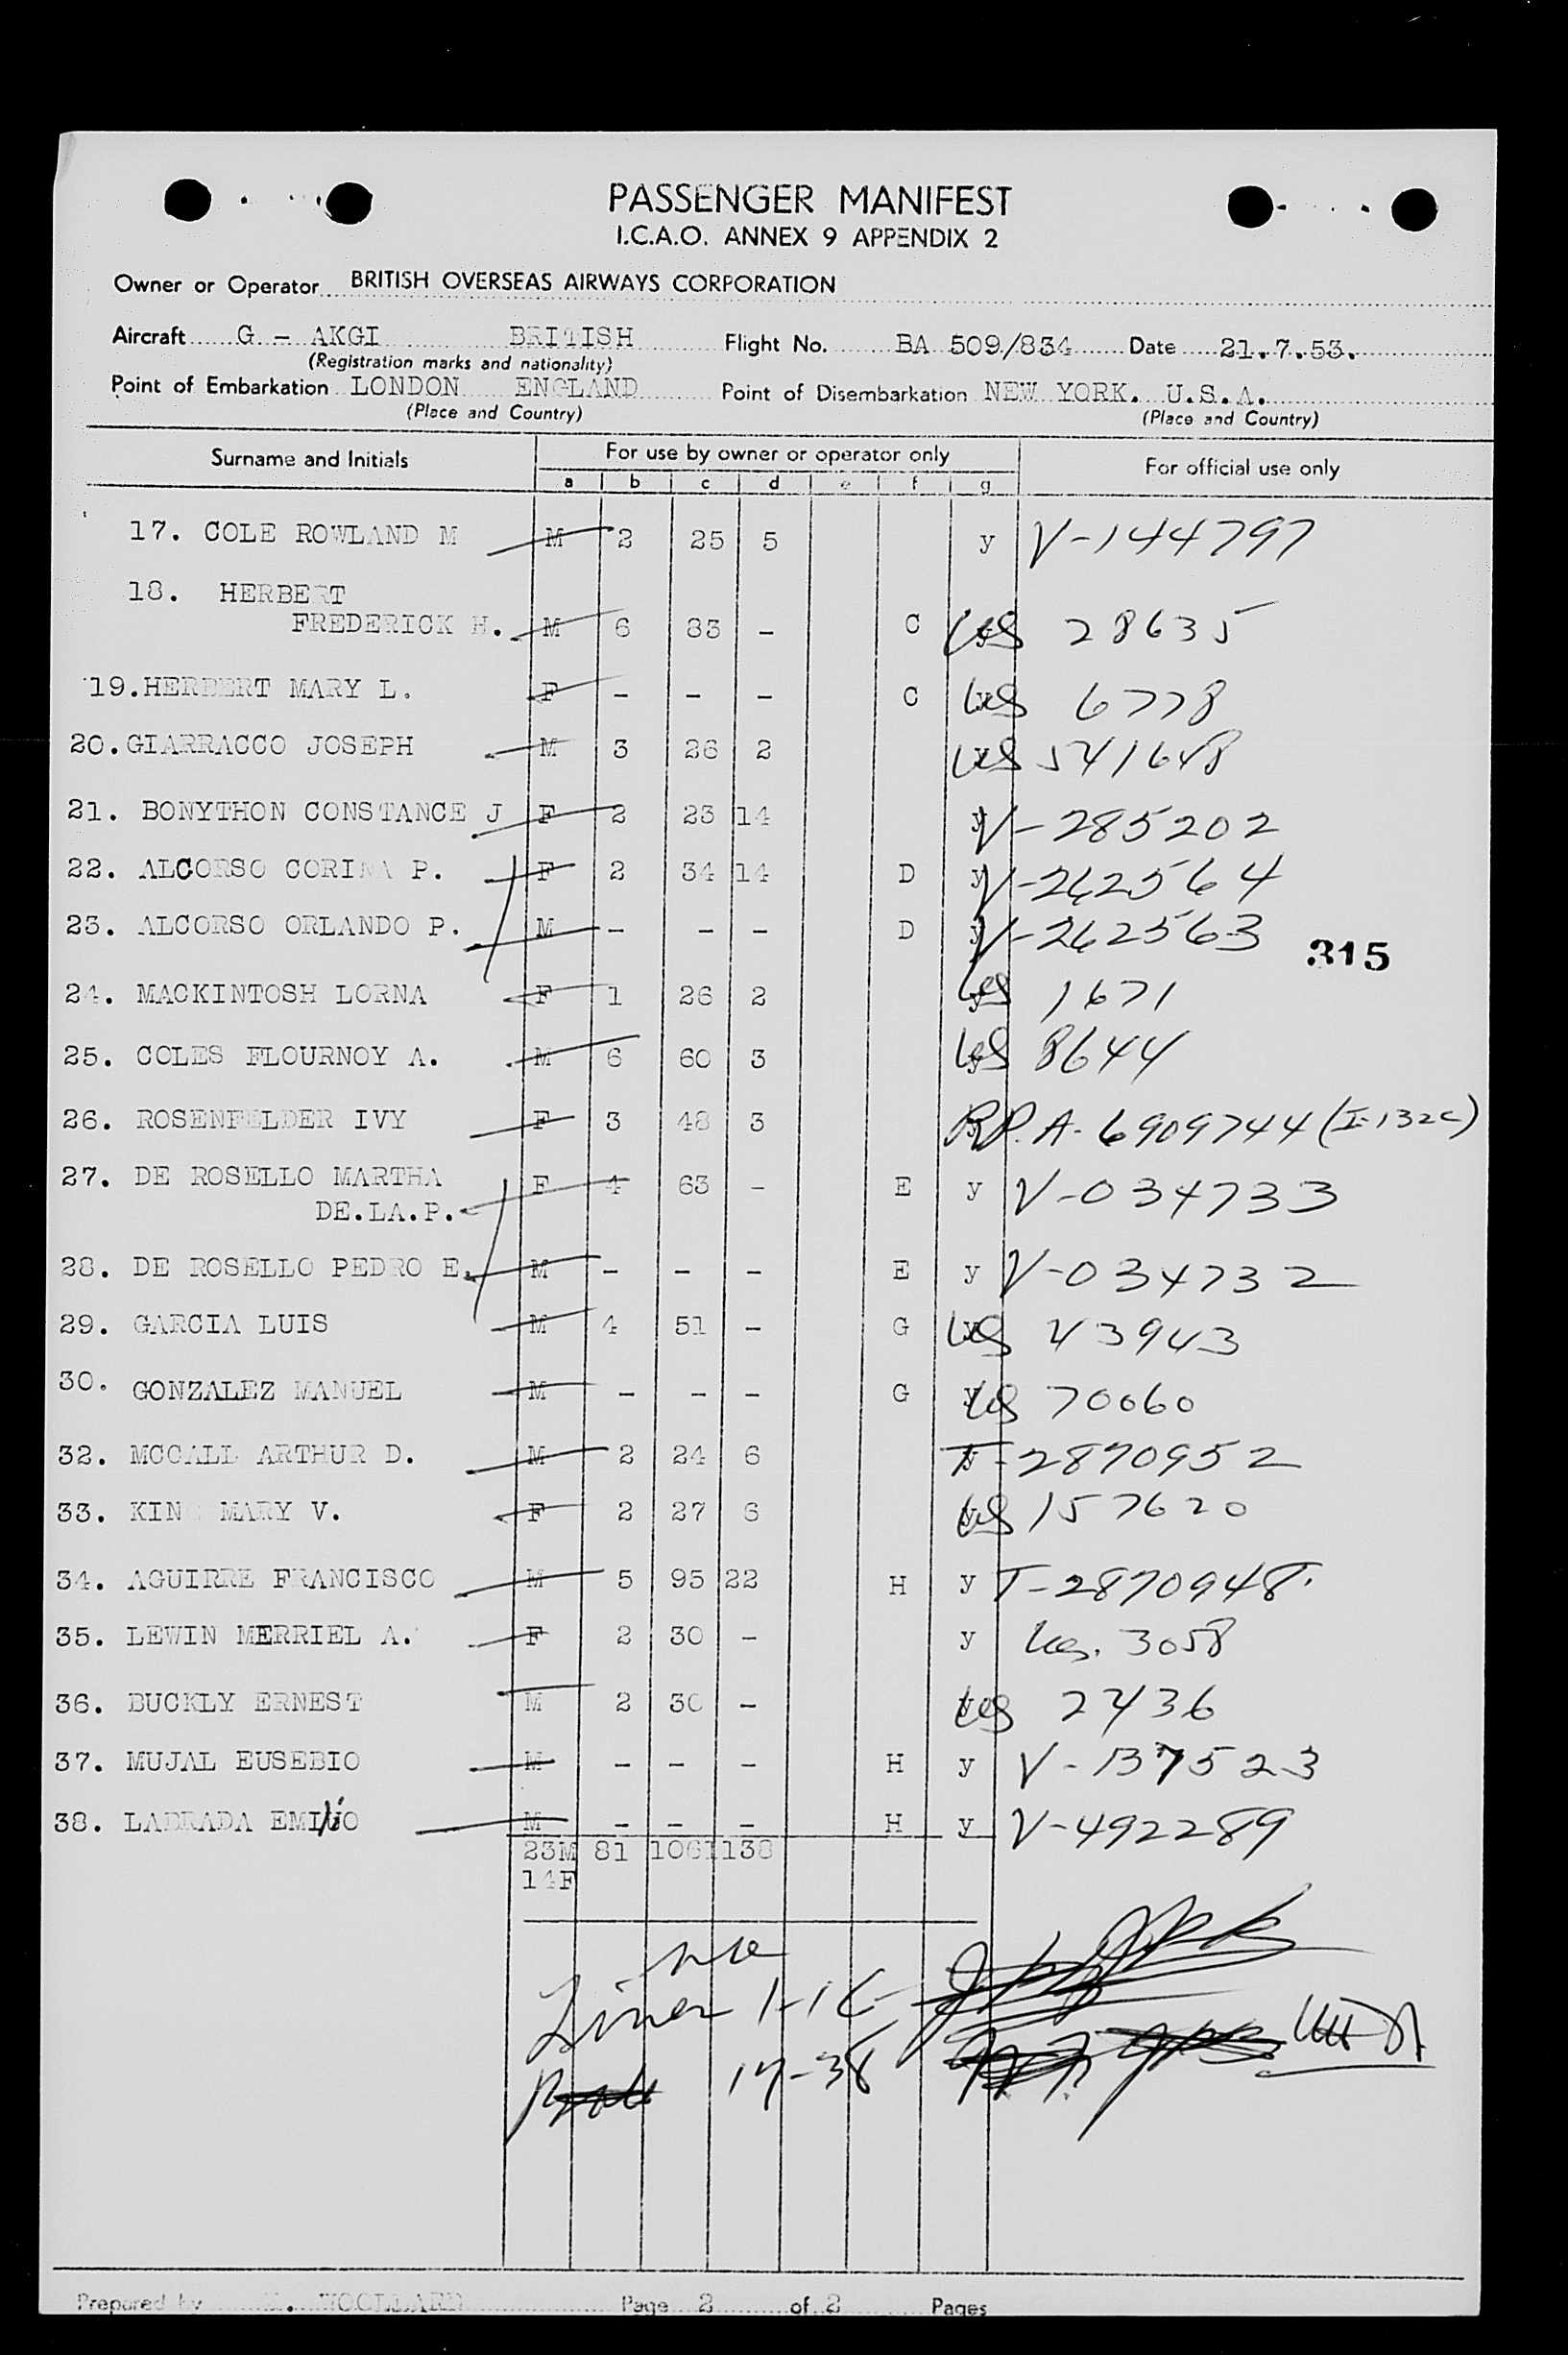 PASSENGER MANIFEST
I.C.A.O. ANNEX 9 APPENDIX 2
Owner or Operator BRITISH OVERSEAS AIRWAYS CORPORATION
Aircraft G - AKGI BRITISH Flight No. BA 509/834 Date 21.7.53.
(Registration marks and nationality)
Point of Embarkation LONDON ENGLAND Point of Disembarkation NEW YORK. U.S.A.
(Place and Country) (Place and Country)
Surname and Initials For use by owner or operator only For official use only
a b c d e f g
17. COLE ROWLAND M M 2 25 5 y V-144797
18. HERBERT
FREDERICK H. M 6 83 - C US 28635
19. HERBERT MARY L. F - - - C US 6778
20. GIARRACCO JOSEPH M 3 26 2 US 541648
21. BONYTHON CONSTANCE J F 2 23 14 y V-285202
22. ALCORSO CORINA P. F 2 34 14 D y V-262564
23. ALCORSO ORLANDO P. M - - - D y V-262563
315
24. MACKINTOSH LORNA F 1 26 2 y US 1671
25. COLES FLOURNOY A. M 6 60 3 y US 8644
26. ROSENFELDER IVY F 3 48 3 R.P. A-6909744 (I-132c)
27. DE ROSELLO MARTHA F 4 63 - E y V-034733
DE.LA.P.
28. DE ROSELLO PEDRO E. M - - - E y V-034732
29. GARCIA LUIS M 4 51 - G y US 43943
30. GONZALEZ MANUEL M - - - G y US 70060
32. MCCALL ARTHUR D. M 2 24 6 y T-2870952
33. KING MARY V. F 2 27 6 y US 157620
34. AGUIRRE FRANCISCO M 5 95 22 H y T-2870948
35. LEWIN MERRIEL A. F 2 30 - y US. 3058
36. BUCKLY ERNEST M 2 30 - y US 2436
37. MUJAL EUSEBIO M - - - H y V-137523
38. LABRADA EMILIO M - - - H y V-492289
23M 81 1061 138
14F
1-16
17-38
Prepared by WOOLLARD Page 2 of 2 Pages